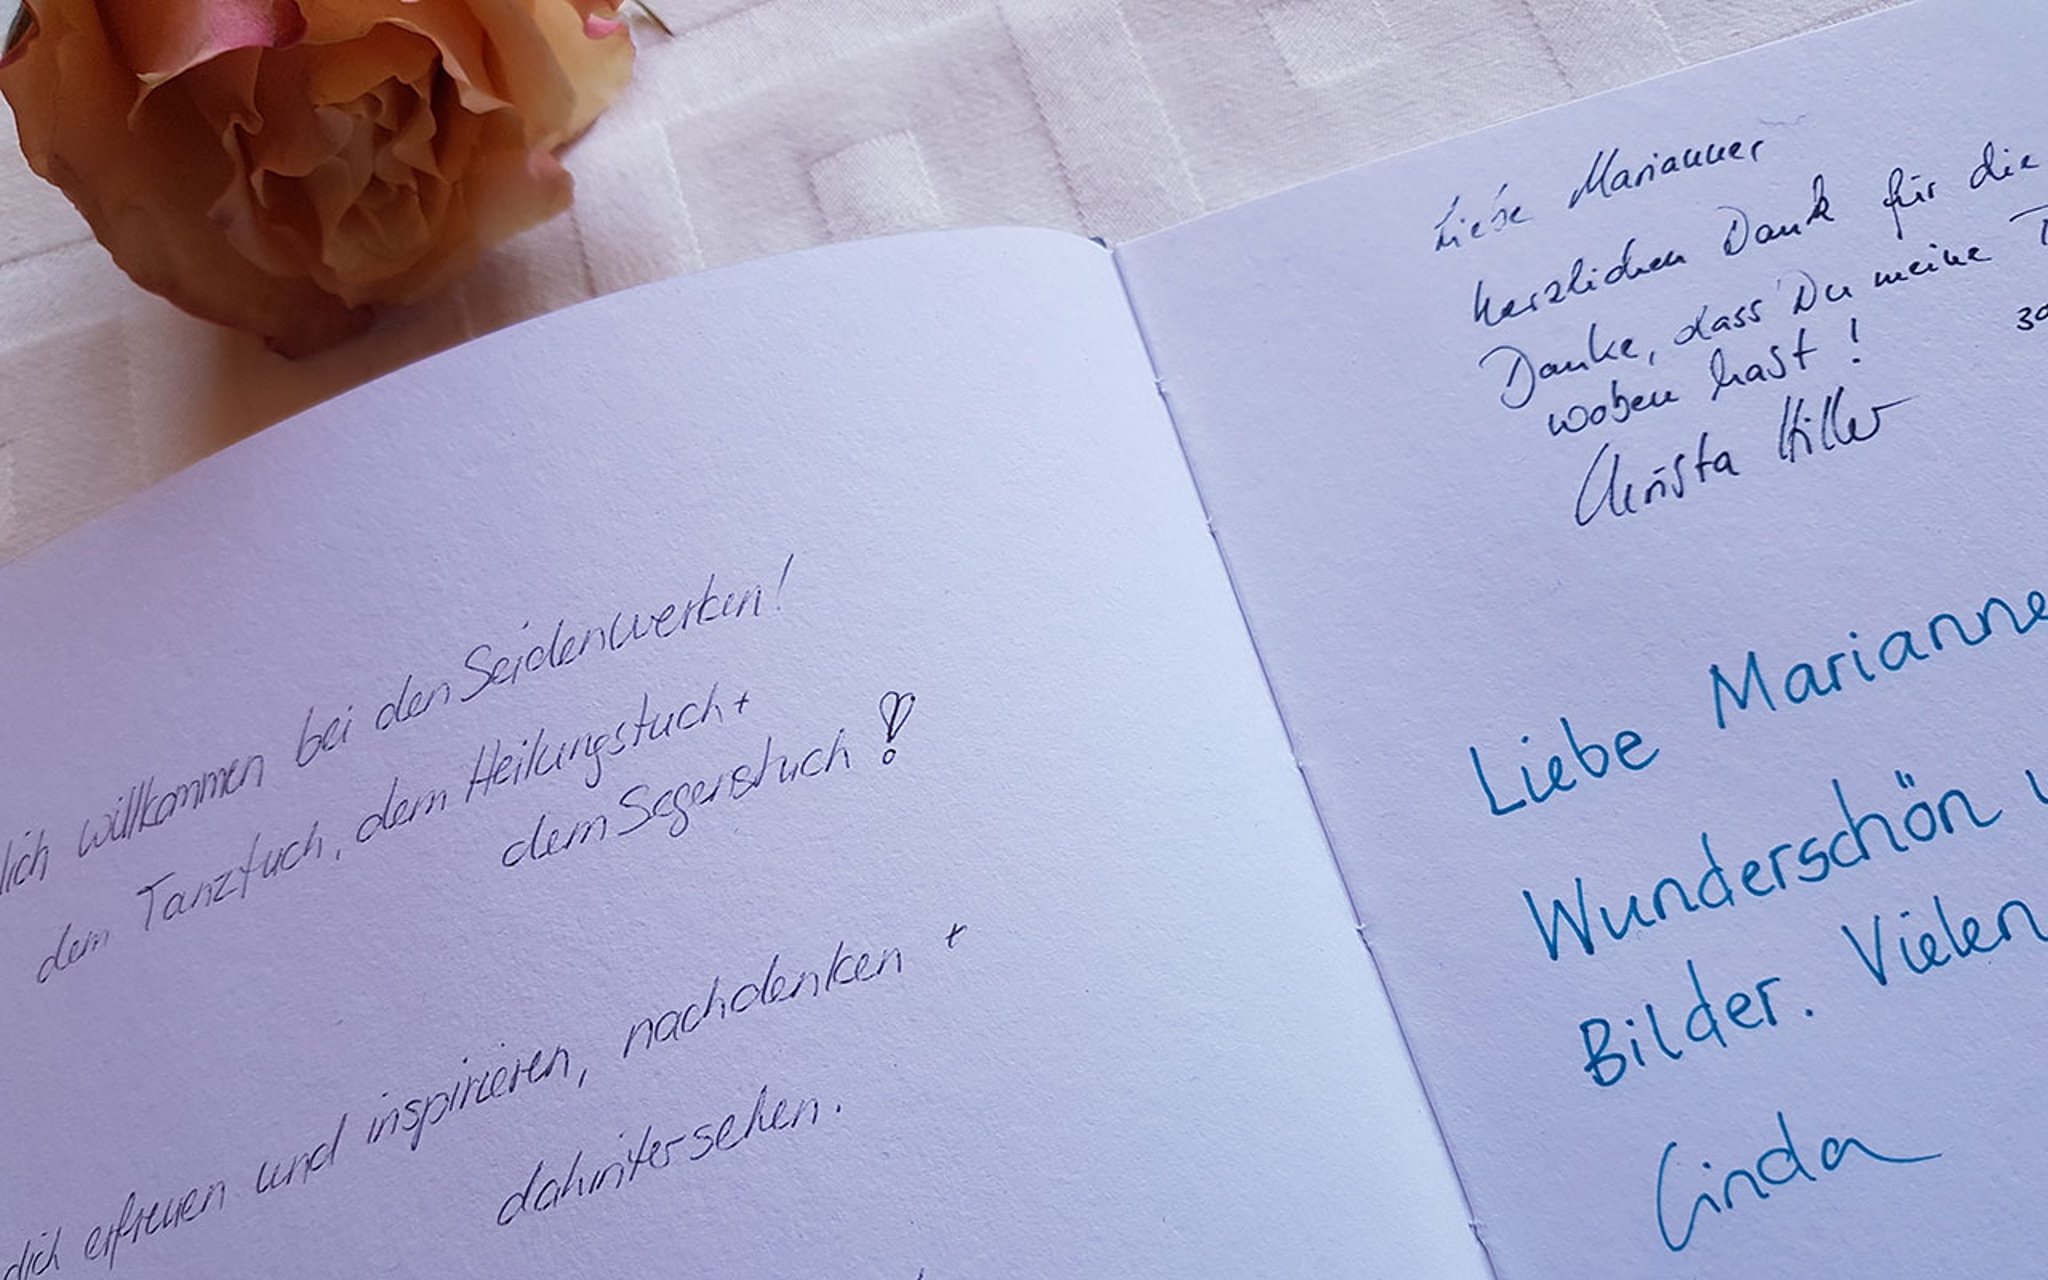 willkommen bei den Seidenwerken!
dem Tanztuch, dem Heilungstuch +
dem Segenstuch!
dich erfreuen und inspirieren, nachdenken +
dahintersehen.
Liebe Marianne,
herzlichen Dank für die
Danke, dass Du meine
woben hast!
Christa Hiller
Liebe Marianne
Wunderschön
Bilder. Vielen
Linda